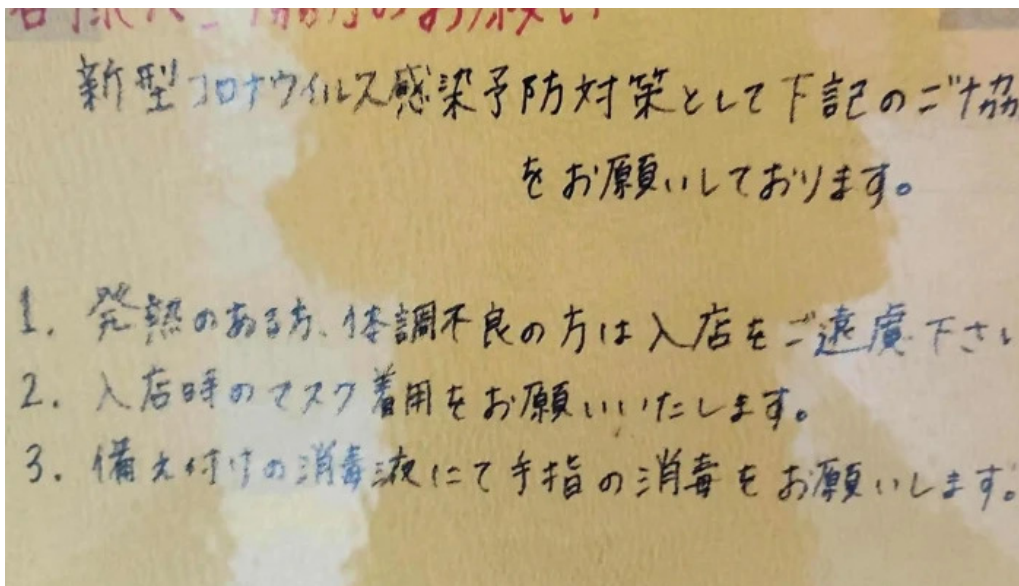 ご協力のお願い
新型コロナウイルス感染予防対策として下記のご協
をお願いしております。
1. 発熱のある方、体調不良の方は入店をご遠慮下さい
2. 入店時のマスク着用をお願いいたします。
3. 備え付けの消毒液にて手指の消毒をお願いします。